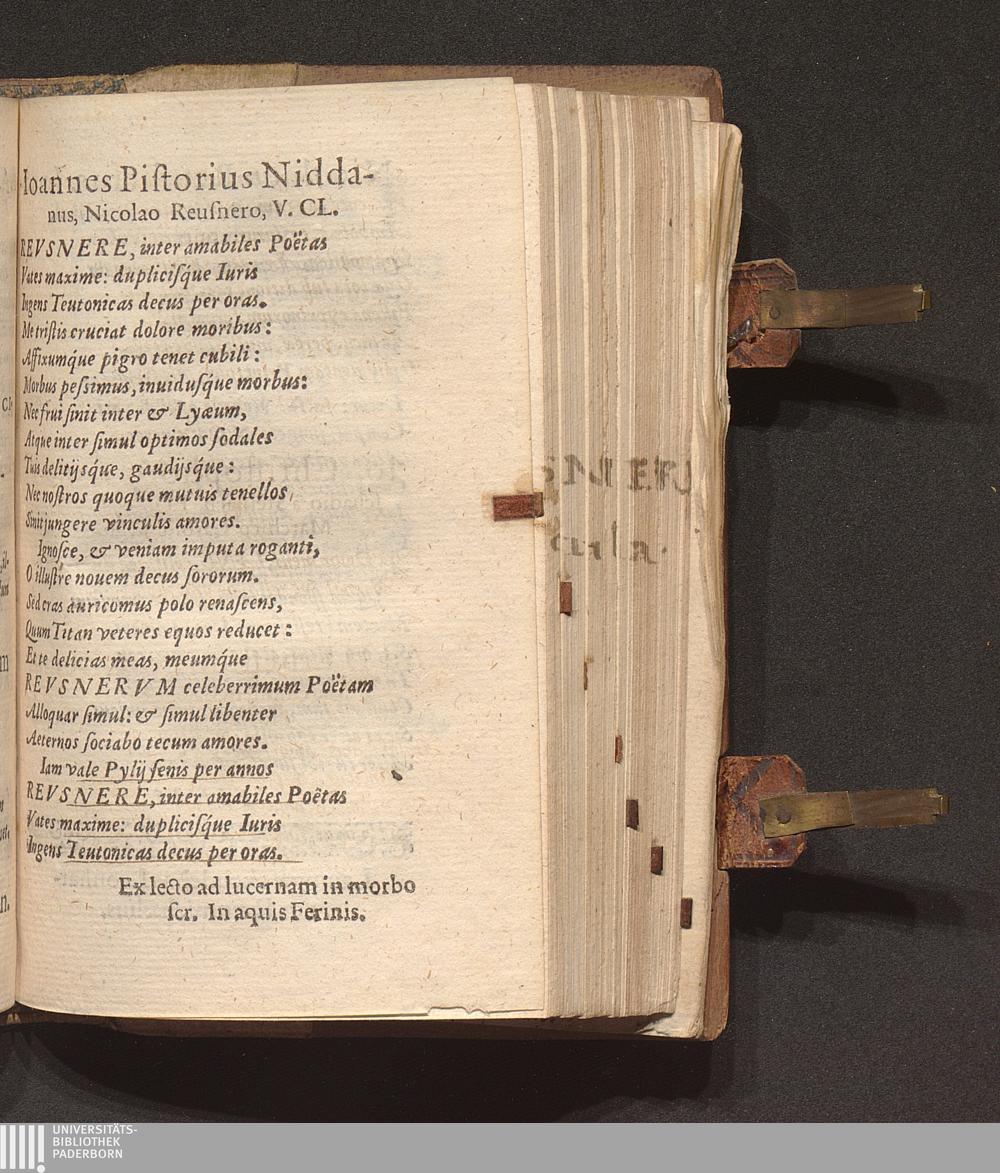 Ioannes Piſtorius Nidda-
nus, Nicolao Reuſnero, V. CL.
REVSNERE, inter amabiles Poëtas
Vates maxime: dupliciſq́ue Iuris
Ingens Teutonicas decus per oras.
Me triſtis cruciat dolore moribus:
Affixumq́ue pigro tenet cubili:
Morbus peſsimus, inuiduſq́ue morbus:
Nec frui ſinit inter & Lyæum,
Atque inter ſimul optimos ſodales
Tuis delitijsq́ue, gaudijsq́ue:
Nec noſtros quoque mutuis tenellos,
Sinit jungere vinculis amores.
Ignoſce, & veniam imputa roganti,
O illuſtre nouem decus ſororum.
Sed cras auricomus polo renaſcens,
Quum Titan veteres equos reducet:
Et te delicias meas, meumq́ue
REVSNERVM celeberrimum Poëtam
Alloquar ſimul: & ſimul libenter
Aeternos ſociabo tecum amores.
Iam vale Pylij ſenis per annos
REVSNERE, inter amabiles Poëtas
Vates maxime: dupliciſq́ue Iuris
Ingens Teutonicas decus per oras.
Ex lecto ad lucernam in morbo
ſcr. In aquis Ferinis.
SNERI
UNIVERSITÄTS-
BIBLIOTHEK
PADERBORN